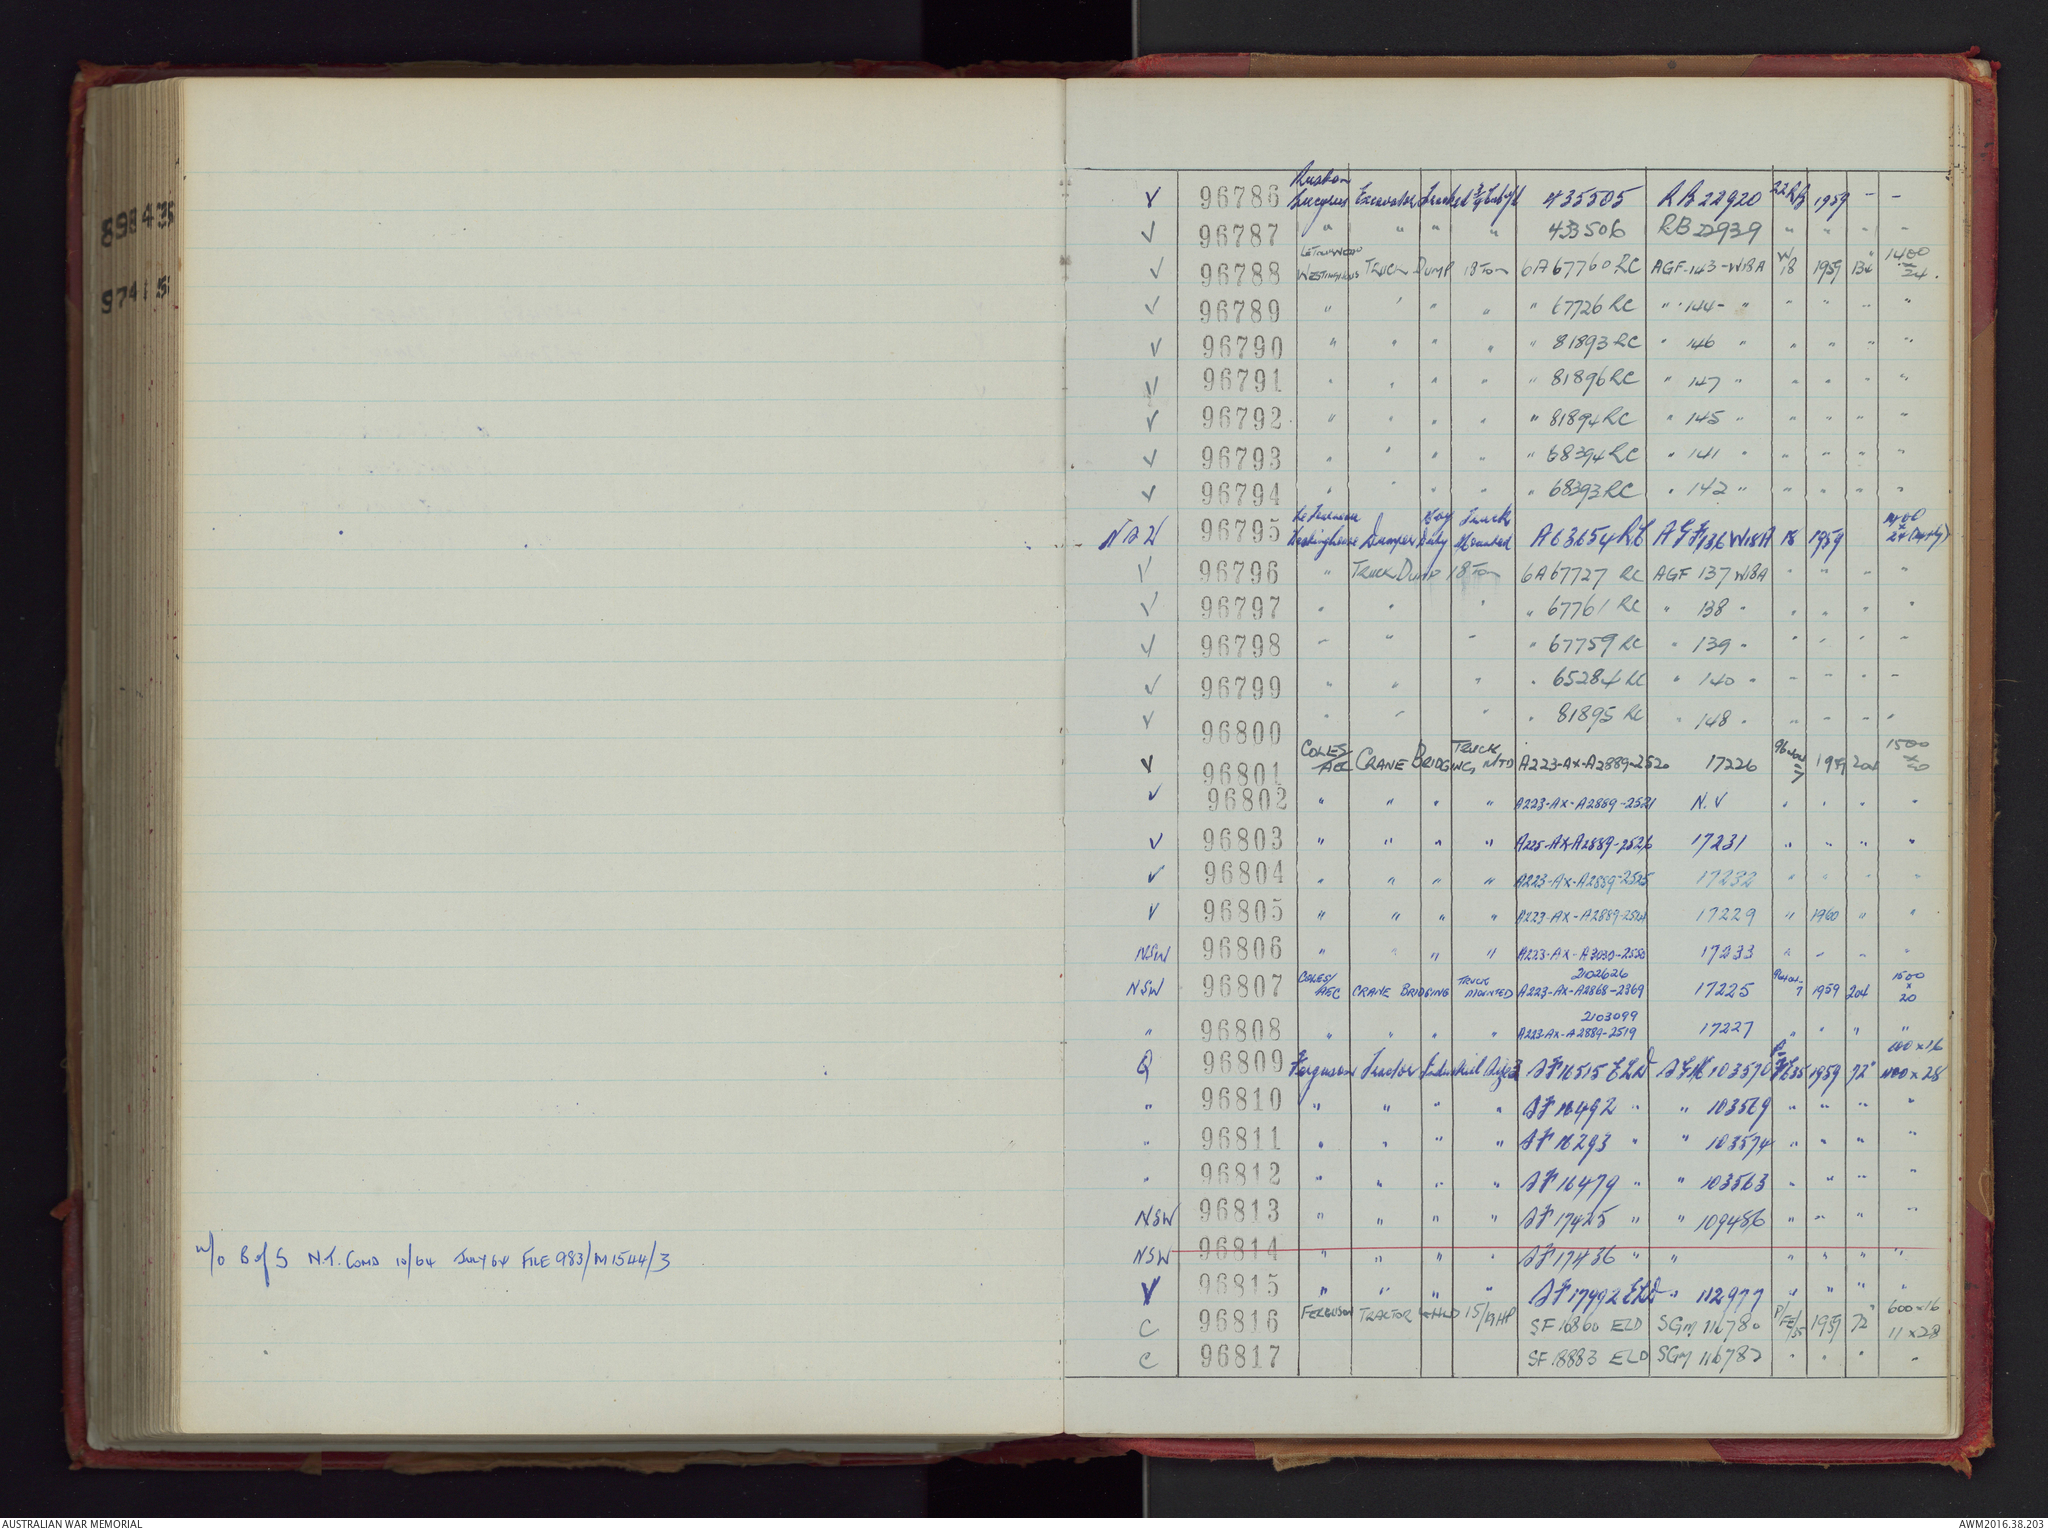 898435
97415
w/o B of S N.T. Comd 10/64 July 64 File 983/M1544/3
V 96786 Ruston Bucyrus Excavator Tracked 3/4 Cub Yd 435505 RB 22920 22RB 1959 - -
V 96787 " " " " 433506 RB 22939 " " " "
V 96788 Westinghous Truck Dump 18 Ton 6A67760 RC AGF-143-W18A W 18 1959 134" 1400 x 24
V 96789 " " " " " 67726 RC " " 144- " " " " "
V 96790 " " " " " 81893 RC " 146 " " " " "
V 96791 " " " " " 81896 RC " 147 " " " " "
V 96792 " " " " " 81894 RC " 145 " " " " "
V 96793 " " " " " 68394 RC " 141 " " " " "
V 96794 " " " " " 68393 RC " 142 " " " " "
NSW 96795 Le Tourneau Westinghouse Dumper Hvy Duty Truck Mounted A63654 RC AGF 136 W18A 18 1959 1400 x 24
V 96796 " Truck Dump 18 Ton 6A67727 RC AGF 137 W18A " " " "
V 96797 " " " " 67761 RC " 138 " " " " "
V 96798 " " " " 67759 RC " 139 " " " " "
V 96799 " " " " 65284 RC " 140 " " " " "
V 96800 " " " " 81895 RC " 148 " " " " "
V 96801 Coles/AEC Crane Bridging Truck Mtd A223-AX-A2889-2520 17226 1959 204 1500 x 20
V 96802 " " " " A223-AX-A2889-2521 N.V " " " "
V 96803 " " " " A225-AX-A2889-2526 17231 " " " "
V 96804 " " " " A223-AX-A2889-2525 17232 " " " "
V 96805 " " " " A223-AX-A2889-2524 17229 " 1960 " "
NSW 96806 " " " " A223-AX-A3030-2550 17233 " " " "
NSW 96807 Coles/AEC Crane Bridging Truck Mounted 2102626 A223-AX-A2868-2369 17225 1959 204 1500 x 20
" 96808 " " " " 2103099 A223-AX-A2889-2519 17227 " " " "
Q 96809 Ferguson Tractor Industrial SF 16515 ELD SGM 103570 FE35 1959 72" 600 x 16 1100 x 28
" 96810 " " " " SF 16492 " " 103569 " " " "
" 96811 " " " " SF 16293 " " 103574 " " " "
" 96812 " " " " SF 16479 " " 103563 " " " "
NSW 96813 " " " " SF 17425 " " 109486 " " " "
NSW 96814 " " " " SF 17436 " " " " " "
V 96815 " " " " SF 17992 ELD " 112977 " " " "
C 96816 Ferguson Tractor Whld 15/19HP SF 18860 ELD SGM 116780 P/FE/35 1959 72" 600 x 16 11 x 28
C 96817 SF 18883 ELD SGM 116782 " " " "
AUSTRALIAN WAR MEMORIAL
AWM2016.38.203